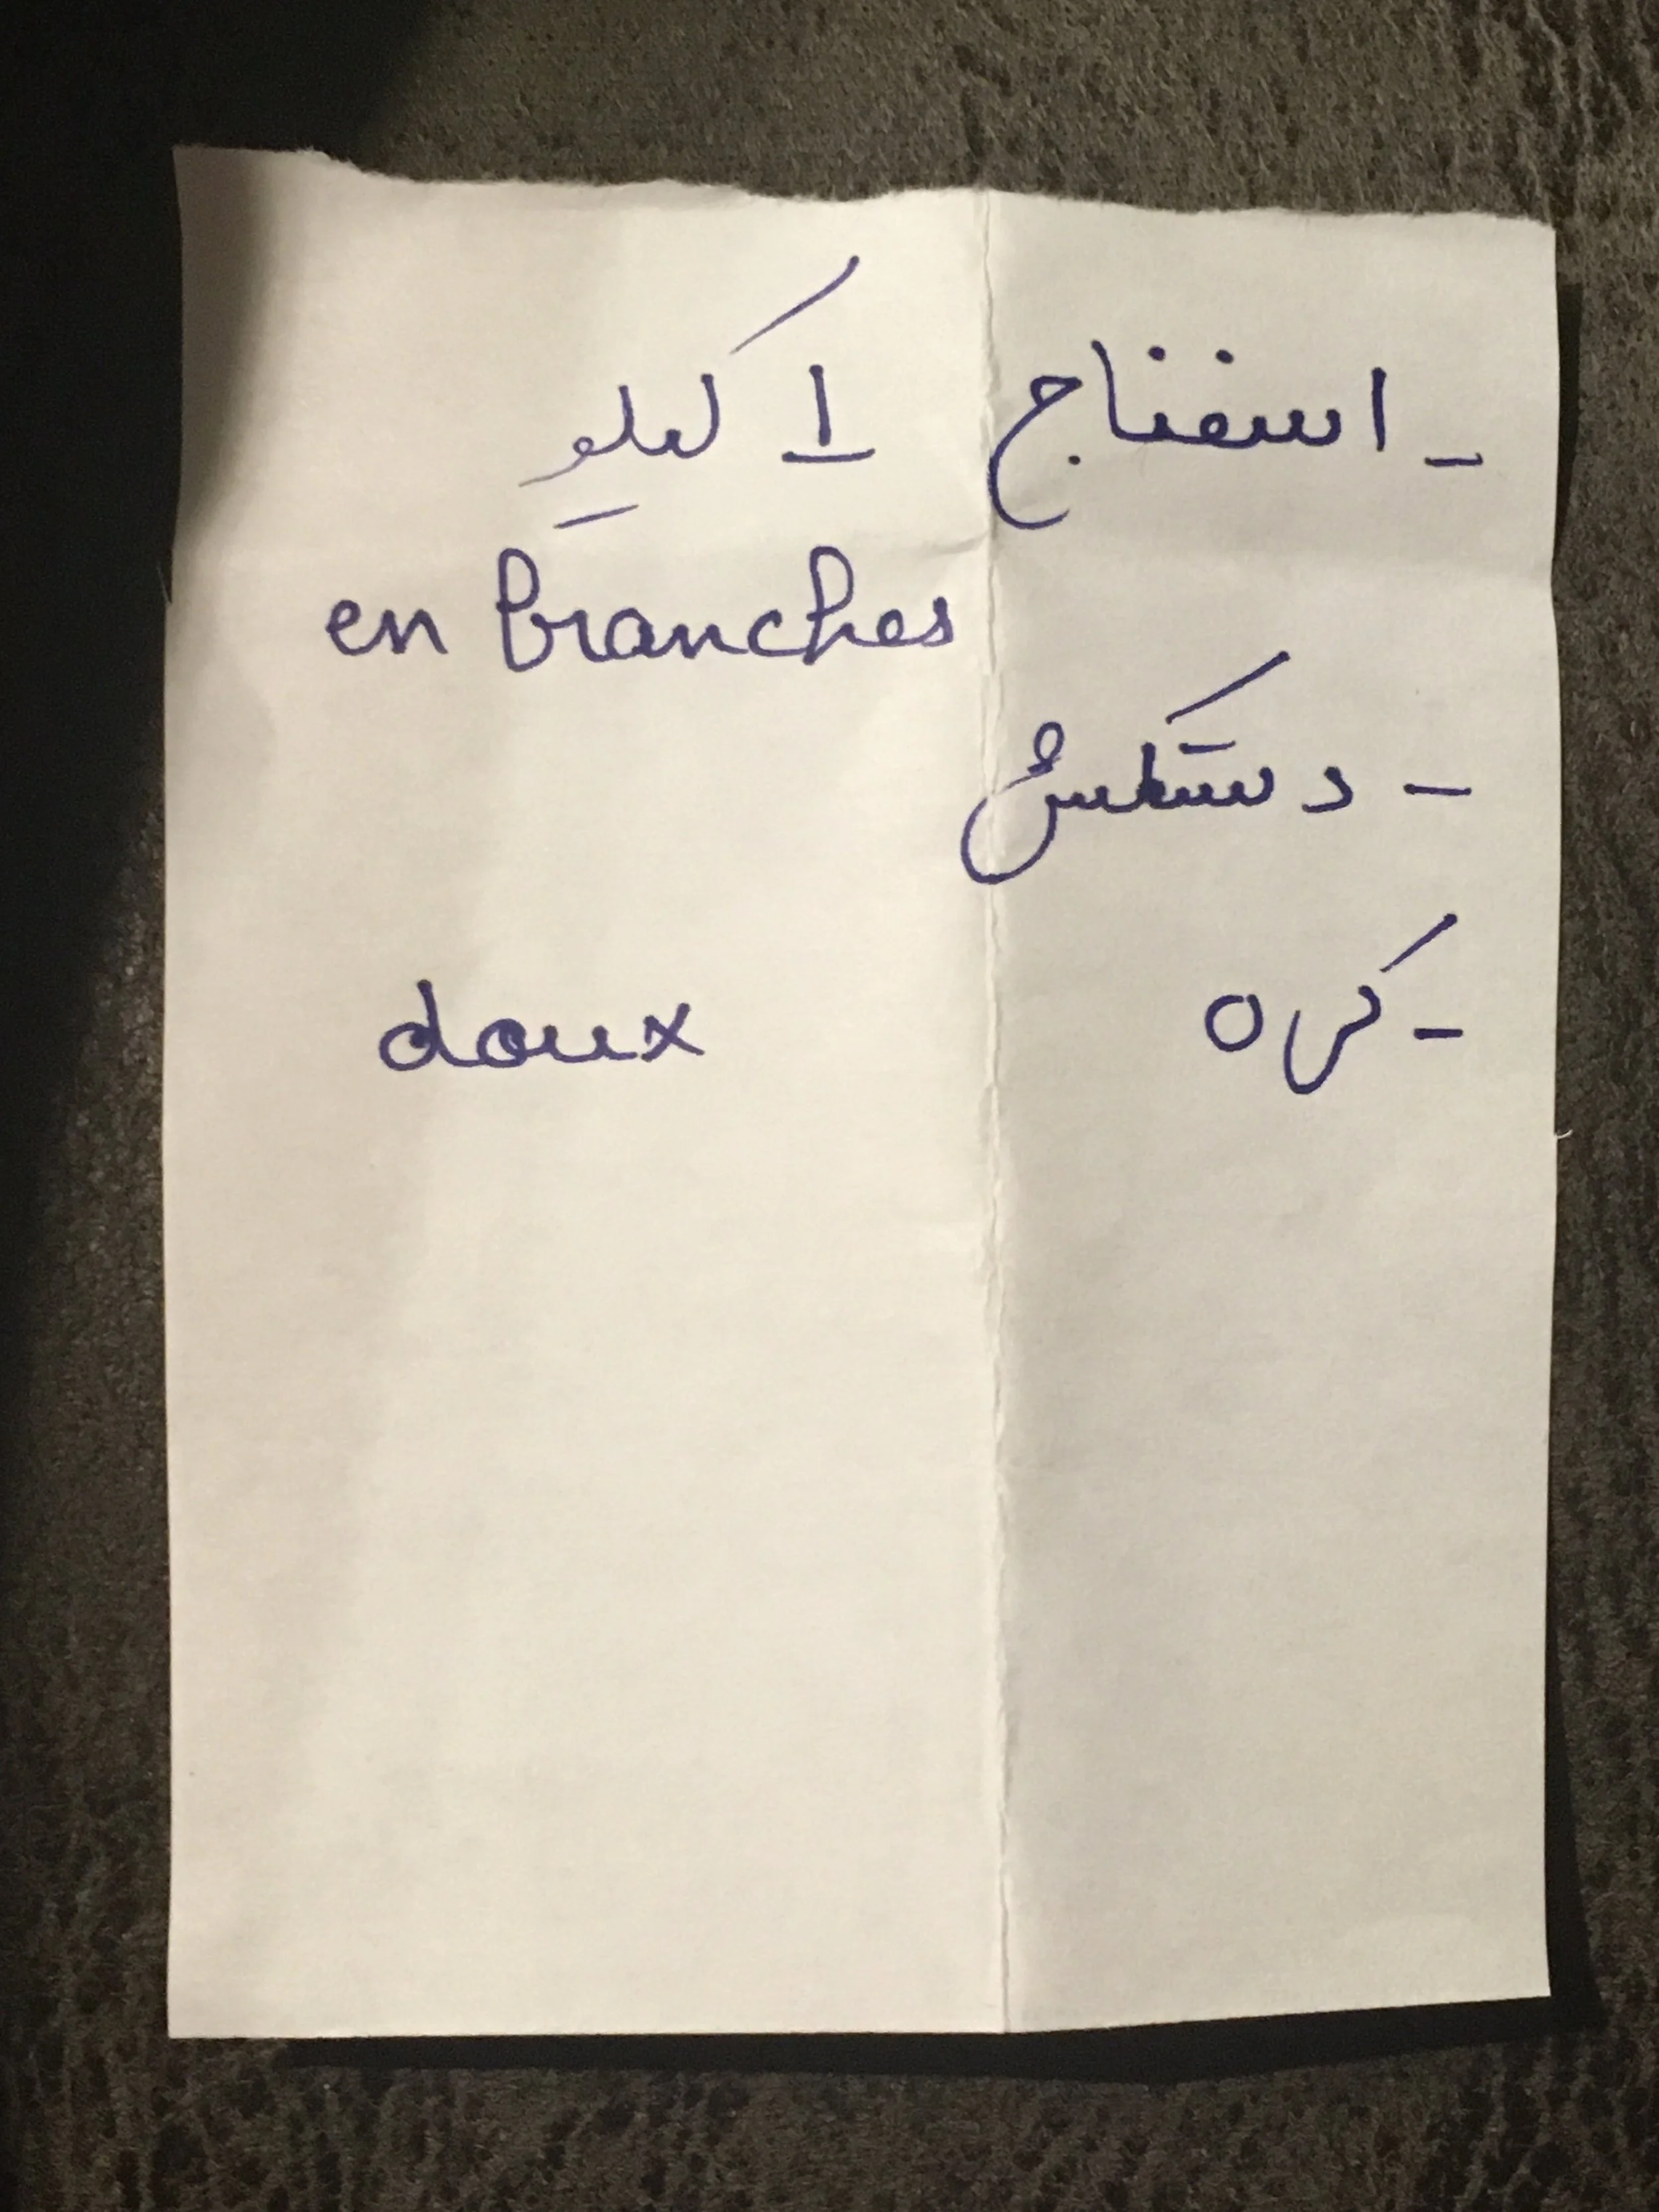 - اسفناج ۱ کیلو
en branches
- دستکش
- کره doux